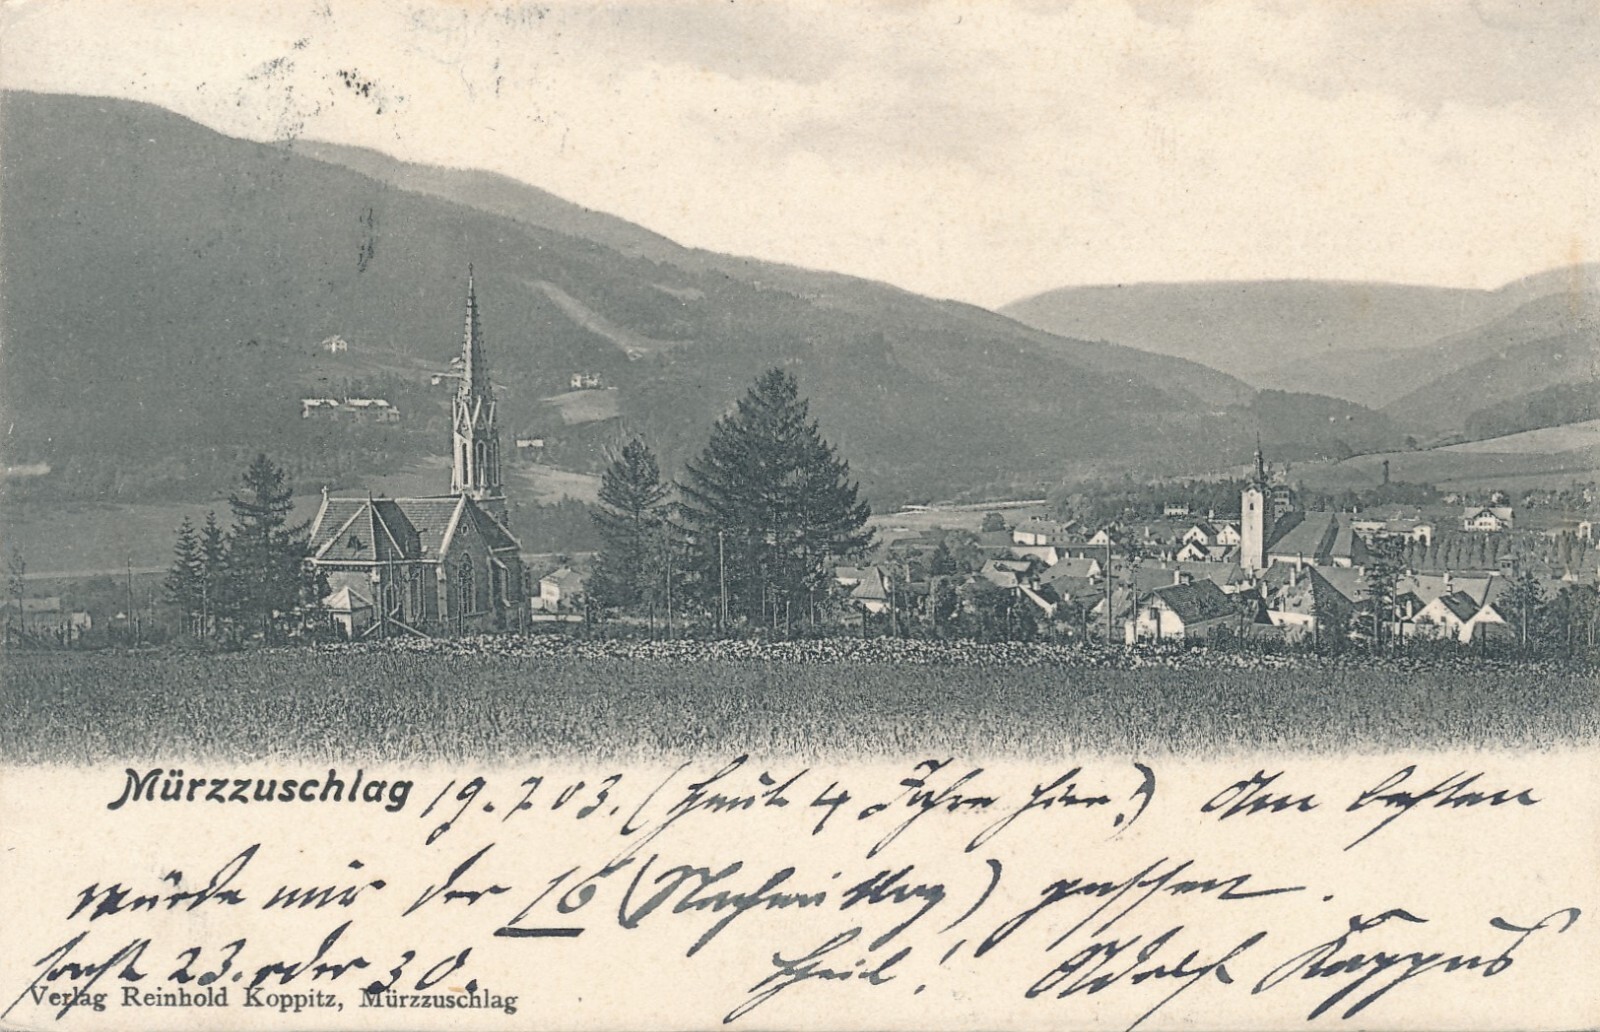 Mürzzuschlag 19.7.03. (Heute 4 Jahre hier!) Am besten
würde mir der 16 (Nachmittag) passen.
sonst 23. oder 30. Heil! Adolf Kappus
Verlag Reinhold Koppitz, Mürzzuschlag